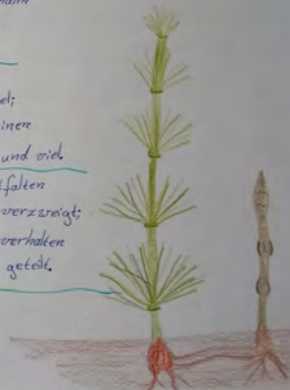 el;
einen
und viel.
falten
verzweigt;
verhalten
geteilt.